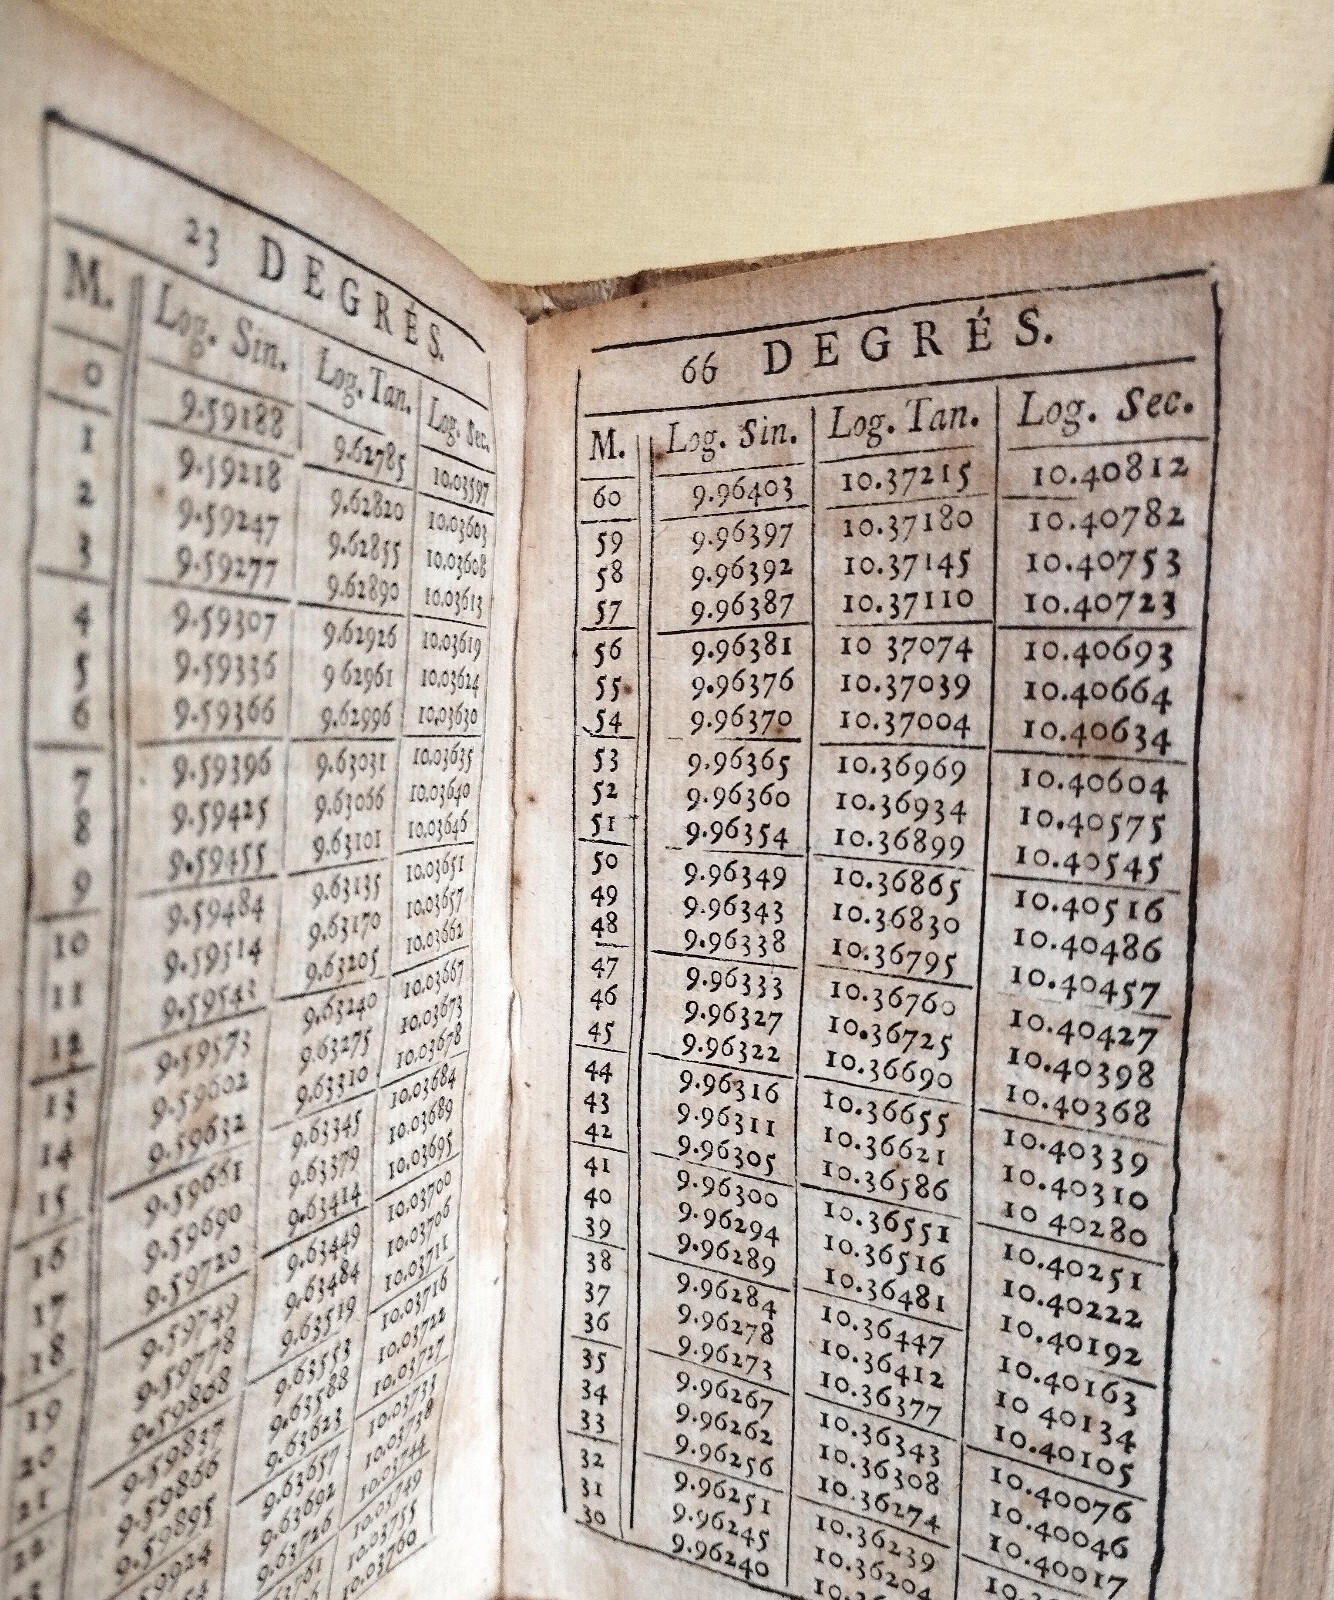 23 DEGRÉS.
M. Log. Sin. Log. Tan. Log. Sec.
0 9.59188 9.62785 10.03597
1 9.59218 9.62820 10.03603
2 9.59247 9.62855 10.03608
3 9.59277 9.62890 10.03613
4 9.59307 9.62926 10.03619
5 9.59336 9 62961 10.03624
6 9.59366 9.62996 10.03630
7 9.59396 9.63031 10.03635
8 9.59425 9.63066 10.03640
9 9.59455 9.63101 10.03646
10 9.59484 9.63135 10.03651
11 9.59514 9.63170 10.03657
12 9.59543 9.63205 10.03662
13 9.59573 9.63240 10.03667
14 9.59602 9.63275 10.03673
15 9.59632 9.63310 10.03678
16 9.59661 9.63345 10.03684
17 9.59690 9.63379 10.03689
18 9.59720 9.63414 10.03695
19 9.59749 9.63449 10.03700
20 9.59778 9.63484 10.03706
21 9.59808 9.63519 10.03711
22 9.59837 9.63553 10.03716
9.59866 9.63588 10.03722
9.59895 9.63623 10.03727
9.63657 10.03733
9.63692 10.03738
9.63726 10.03744
10.03749
10.03755
10.03760
66 DEGRÉS.
M. Log. Sin. Log. Tan. Log. Sec.
60 9.96403 10.37215 10.40812
59 9.96397 10.37180 10.40782
58 9.96392 10.37145 10.40753
57 9.96387 10.37110 10.40723
56 9.96381 10 37074 10.40693
55 9.96376 10.37039 10.40664
54 9.96370 10.37004 10.40634
53 9.96365 10.36969 10.40604
52 9.96360 10.36934 10.40575
51 9.96354 10.36899 10.40545
50 9.96349 10.36865 10.40516
49 9.96343 10.36830 10.40486
48 9.96338 10.36795 10.40457
47 9.96333 10.36760 10.40427
46 9.96327 10.36725 10.40398
45 9.96322 10.36690 10.40368
44 9.96316 10.36655 10.40339
43 9.96311 10.36621 10.40310
42 9.96305 10.36586 10 40280
41 9.96300 10.36551 10.40251
40 9.96294 10.36516 10.40222
39 9.96289 10.36481 10.40192
38 9.96284 10.36447 10.40163
37 9.96278 10.36412 10 40134
36 9.96273 10.36377 10.40105
35 9.96267 10.36343 10.40076
34 9.96262 10.36308 10.40046
33 9.96256 10.36274 10.40017
32 9.96251 10.36239
31 9.96245 10.36204
30 9.96240